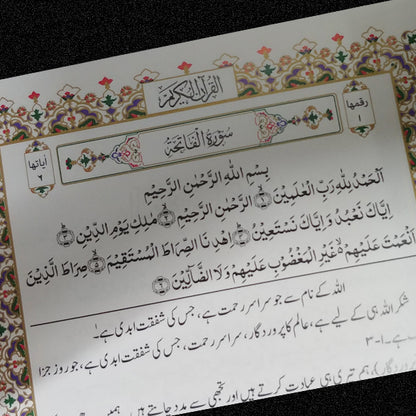 القرآن الكريم
رقمها
١
سُورَةُ الْفَاتِحَةِ
آیاتها
بِسْمِ اللّٰهِ الرَّحْمٰنِ الرَّحِيْمِ
اَلْحَمْدُ لِلّٰهِ رَبِّ الْعٰلَمِيْنَ الرَّحْمٰنِ الرَّحِيْمِ مٰلِكِ يَوْمِ الدِّيْنِ
اِيَّاكَ نَعْبُدُ وَ اِيَّاكَ نَسْتَعِيْنُ اِهْدِنَا الصِّرَاطَ الْمُسْتَقِيْمَ صِرَاطَ الَّذِيْنَ
اَنْعَمْتَ عَلَيْهِمْ غَيْرِ الْمَغْضُوْبِ عَلَيْهِمْ وَلَا الضَّآلِّيْنَ
اللہ کے نام سے جو سراسر رحمت ہے، جس کی شفقت ابدی ہے۔
شکر اللہ ہی کے لیے ہے، عالم کا پروردگار، سراسر رحمت، جس کی شفقت ابدی ہے، جو روز جزا
ہے۔ ۱-۳
ہم تیری ہی عبادت کرتے ہیں اور تجھی سے مدد چاہتے ہیں۔